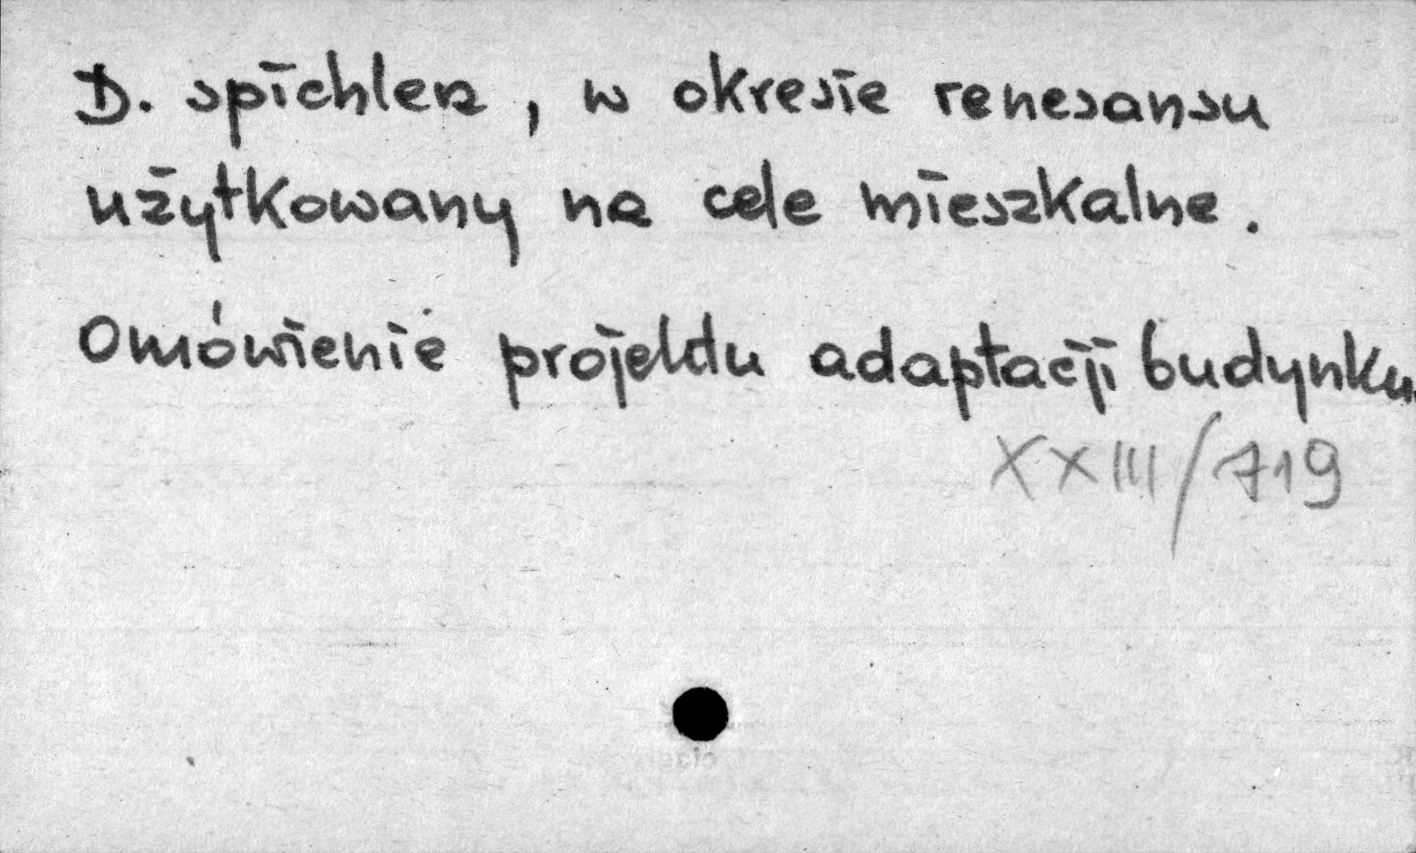 D. spichlerz, w okresie renesansu
użytkowany na cele mieszkalne.
Omówienie projektu adaptacji budynku.
XXIII/719